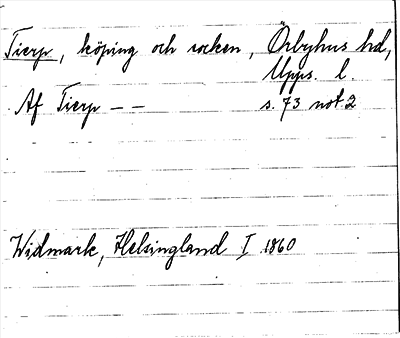 Tierp, köping och socken, Örbyhus hd,
Upps. l.
Af Tierp — — s. 73 not. 2
Widmark, Helsingland I 1860